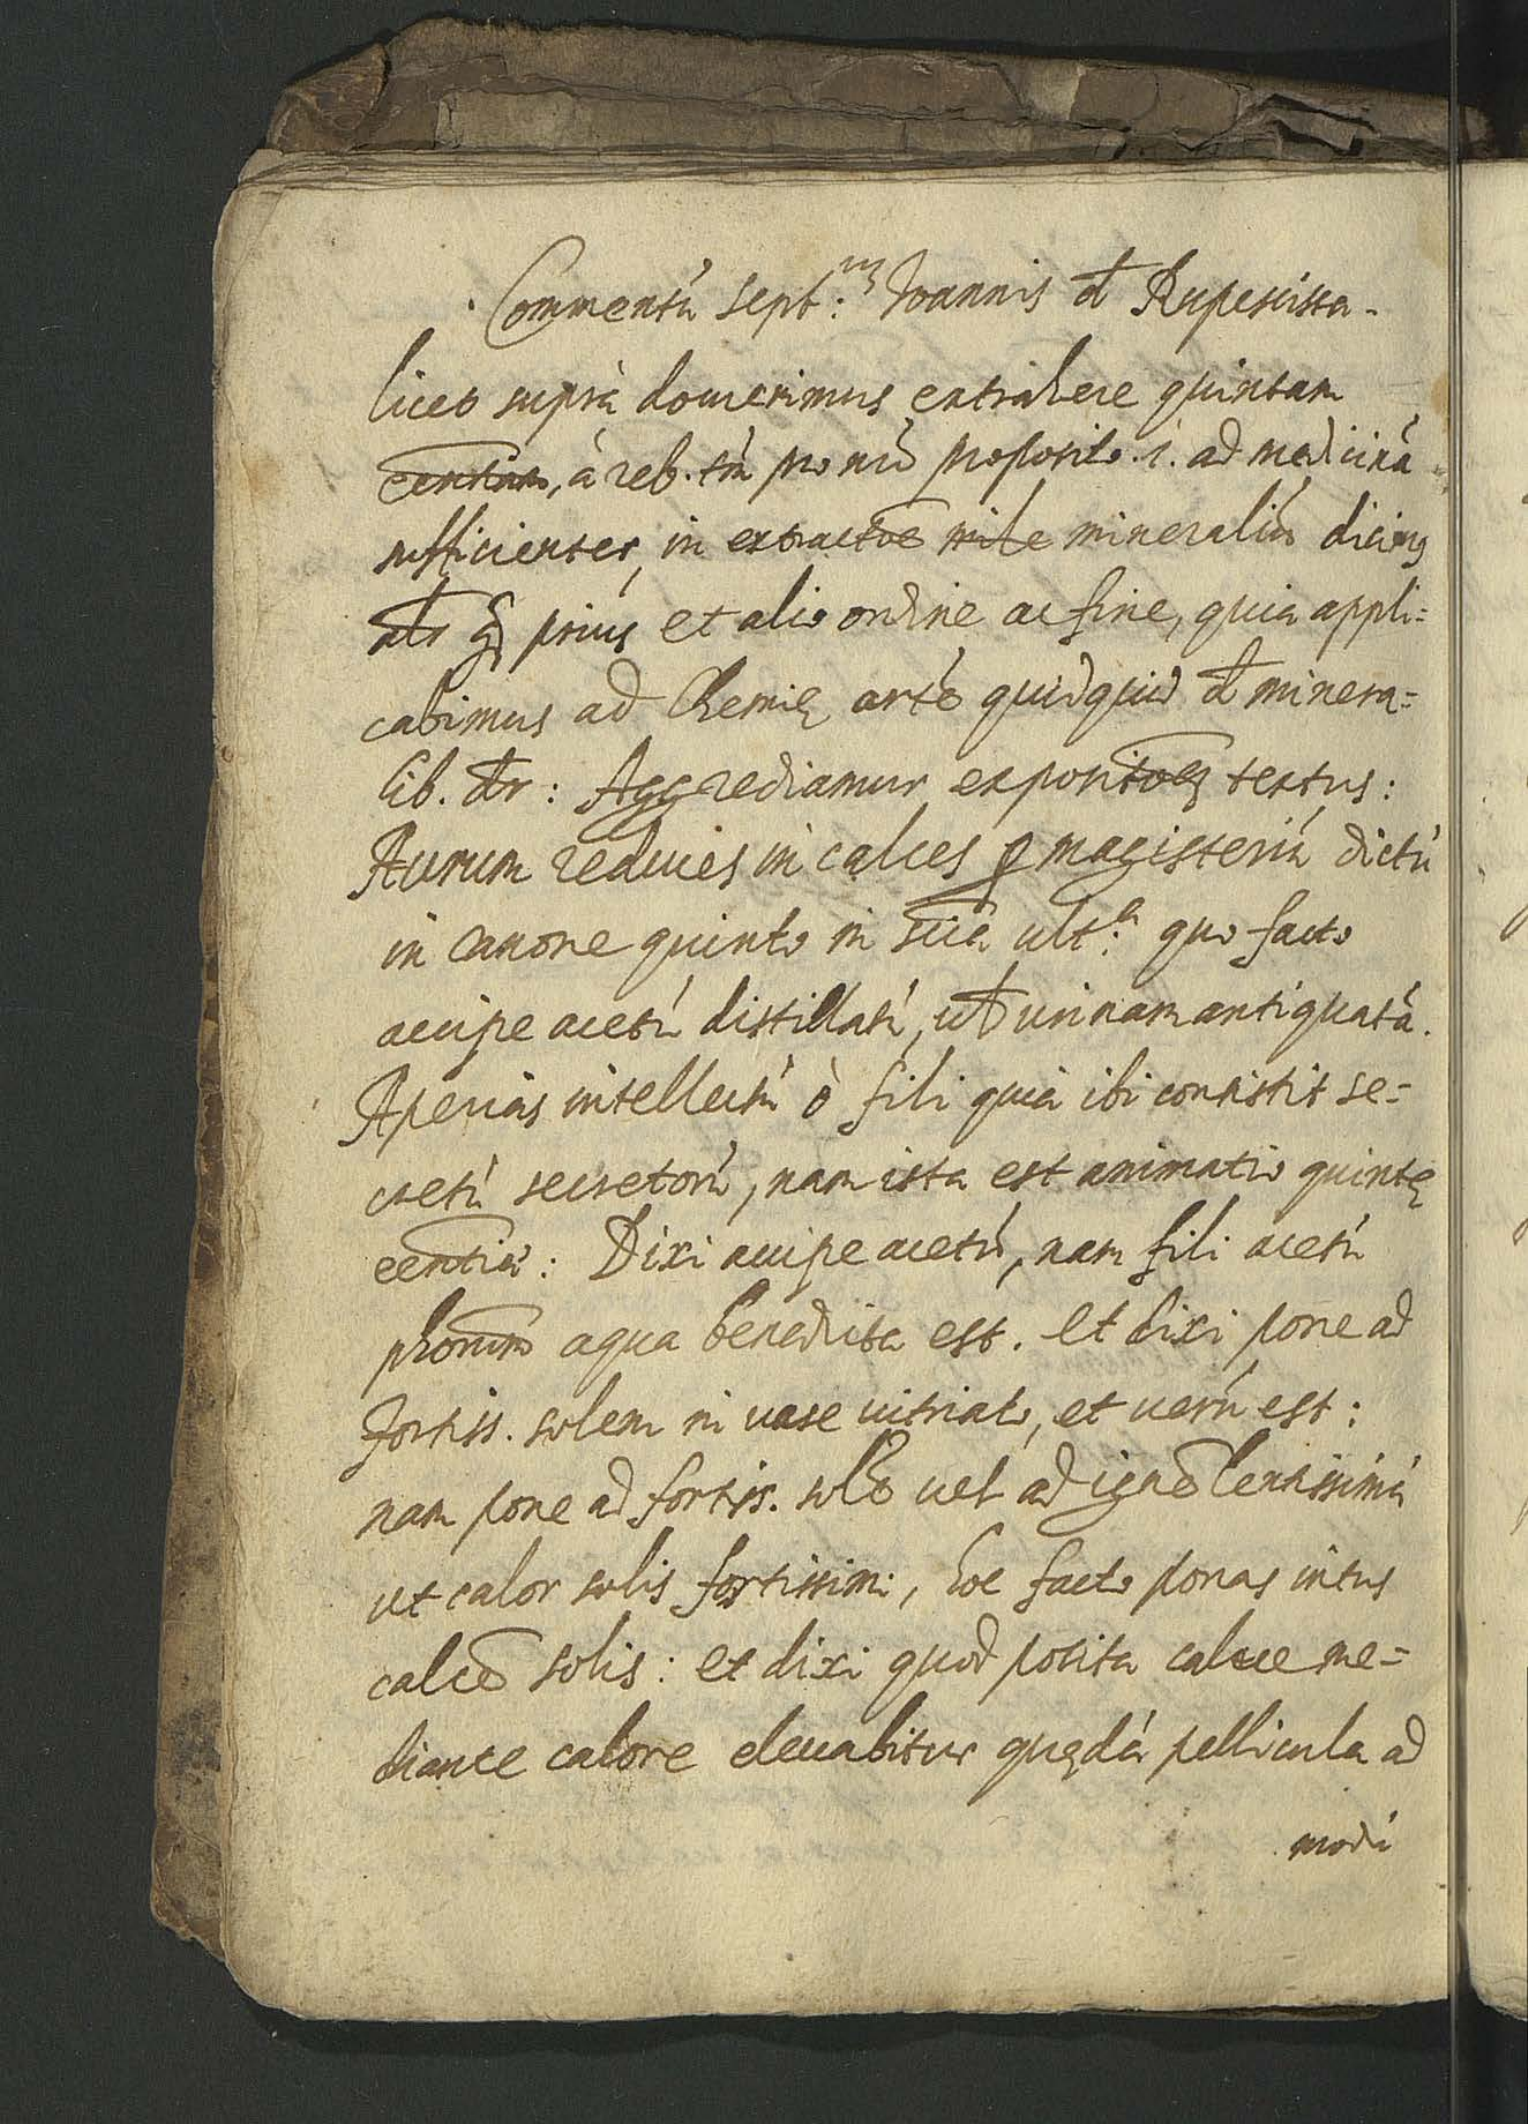 Commentú sept:m Ioannis đ Rupescissa.
licet suprà docuerimus extrahere quintam
eentiam, à reb. tm̀ pro nrō proposito .i. ad medicinà
sufficienter, in extractōe mineraliú dicimus
alr q̃ prius et alio ordine ac fine, quia appli=
cabimus ad Chemię artē quidquid đ minera=
lib. dr: Aggrediamur expositōes textus:
Aurum reduces in calces ꝑ magisteriú dictú
in canone quinto in scia ult:a quo facto
accipe acetú distillatú, vel urinam antiquatà.
Aperias intellectú ò fili quia ibi consistit se=
cretú secretorú, nam ista est animatio quintę
eentia: Dixi accipe acetú, nam fili acetú
phorum aqua benedicta est. et dixi pone ad
fortiss. solem in vase vitriato, et verú est:
nam pone ad fortiss. solē vel ad ignē lentissimú
ut calor solis fortissimi, hoc facto ponas intus
calcē solis: et dixi quod posita calce me=
diante calore elevabitur quędá pellicula ad
modú